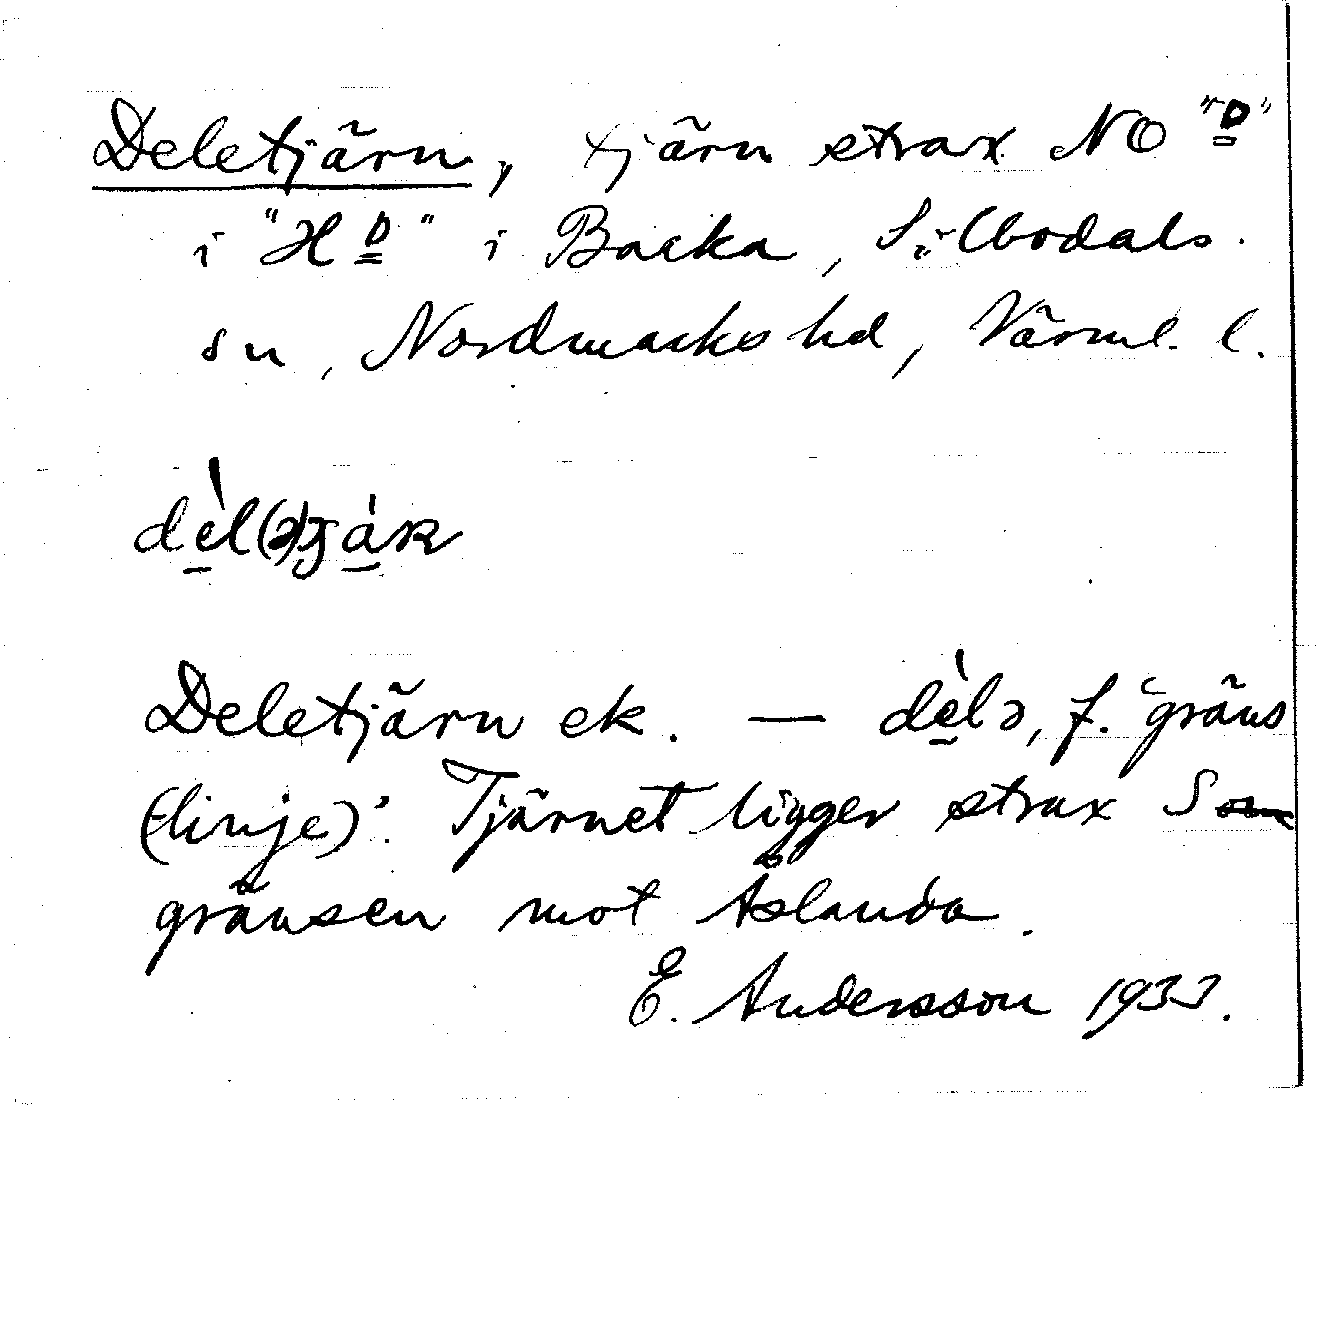 Deletjärn, tjärn strax NO "D"
i "HD" i Backa, Silbodals
sn, Nordmarks hd, Värml. l.
Deletjärn ek. — dèlə, f. 'gräns
(-linje)'. Tjärnet ligger strax S om
gränsen mot Åslanda.
E. Andersson 1933.